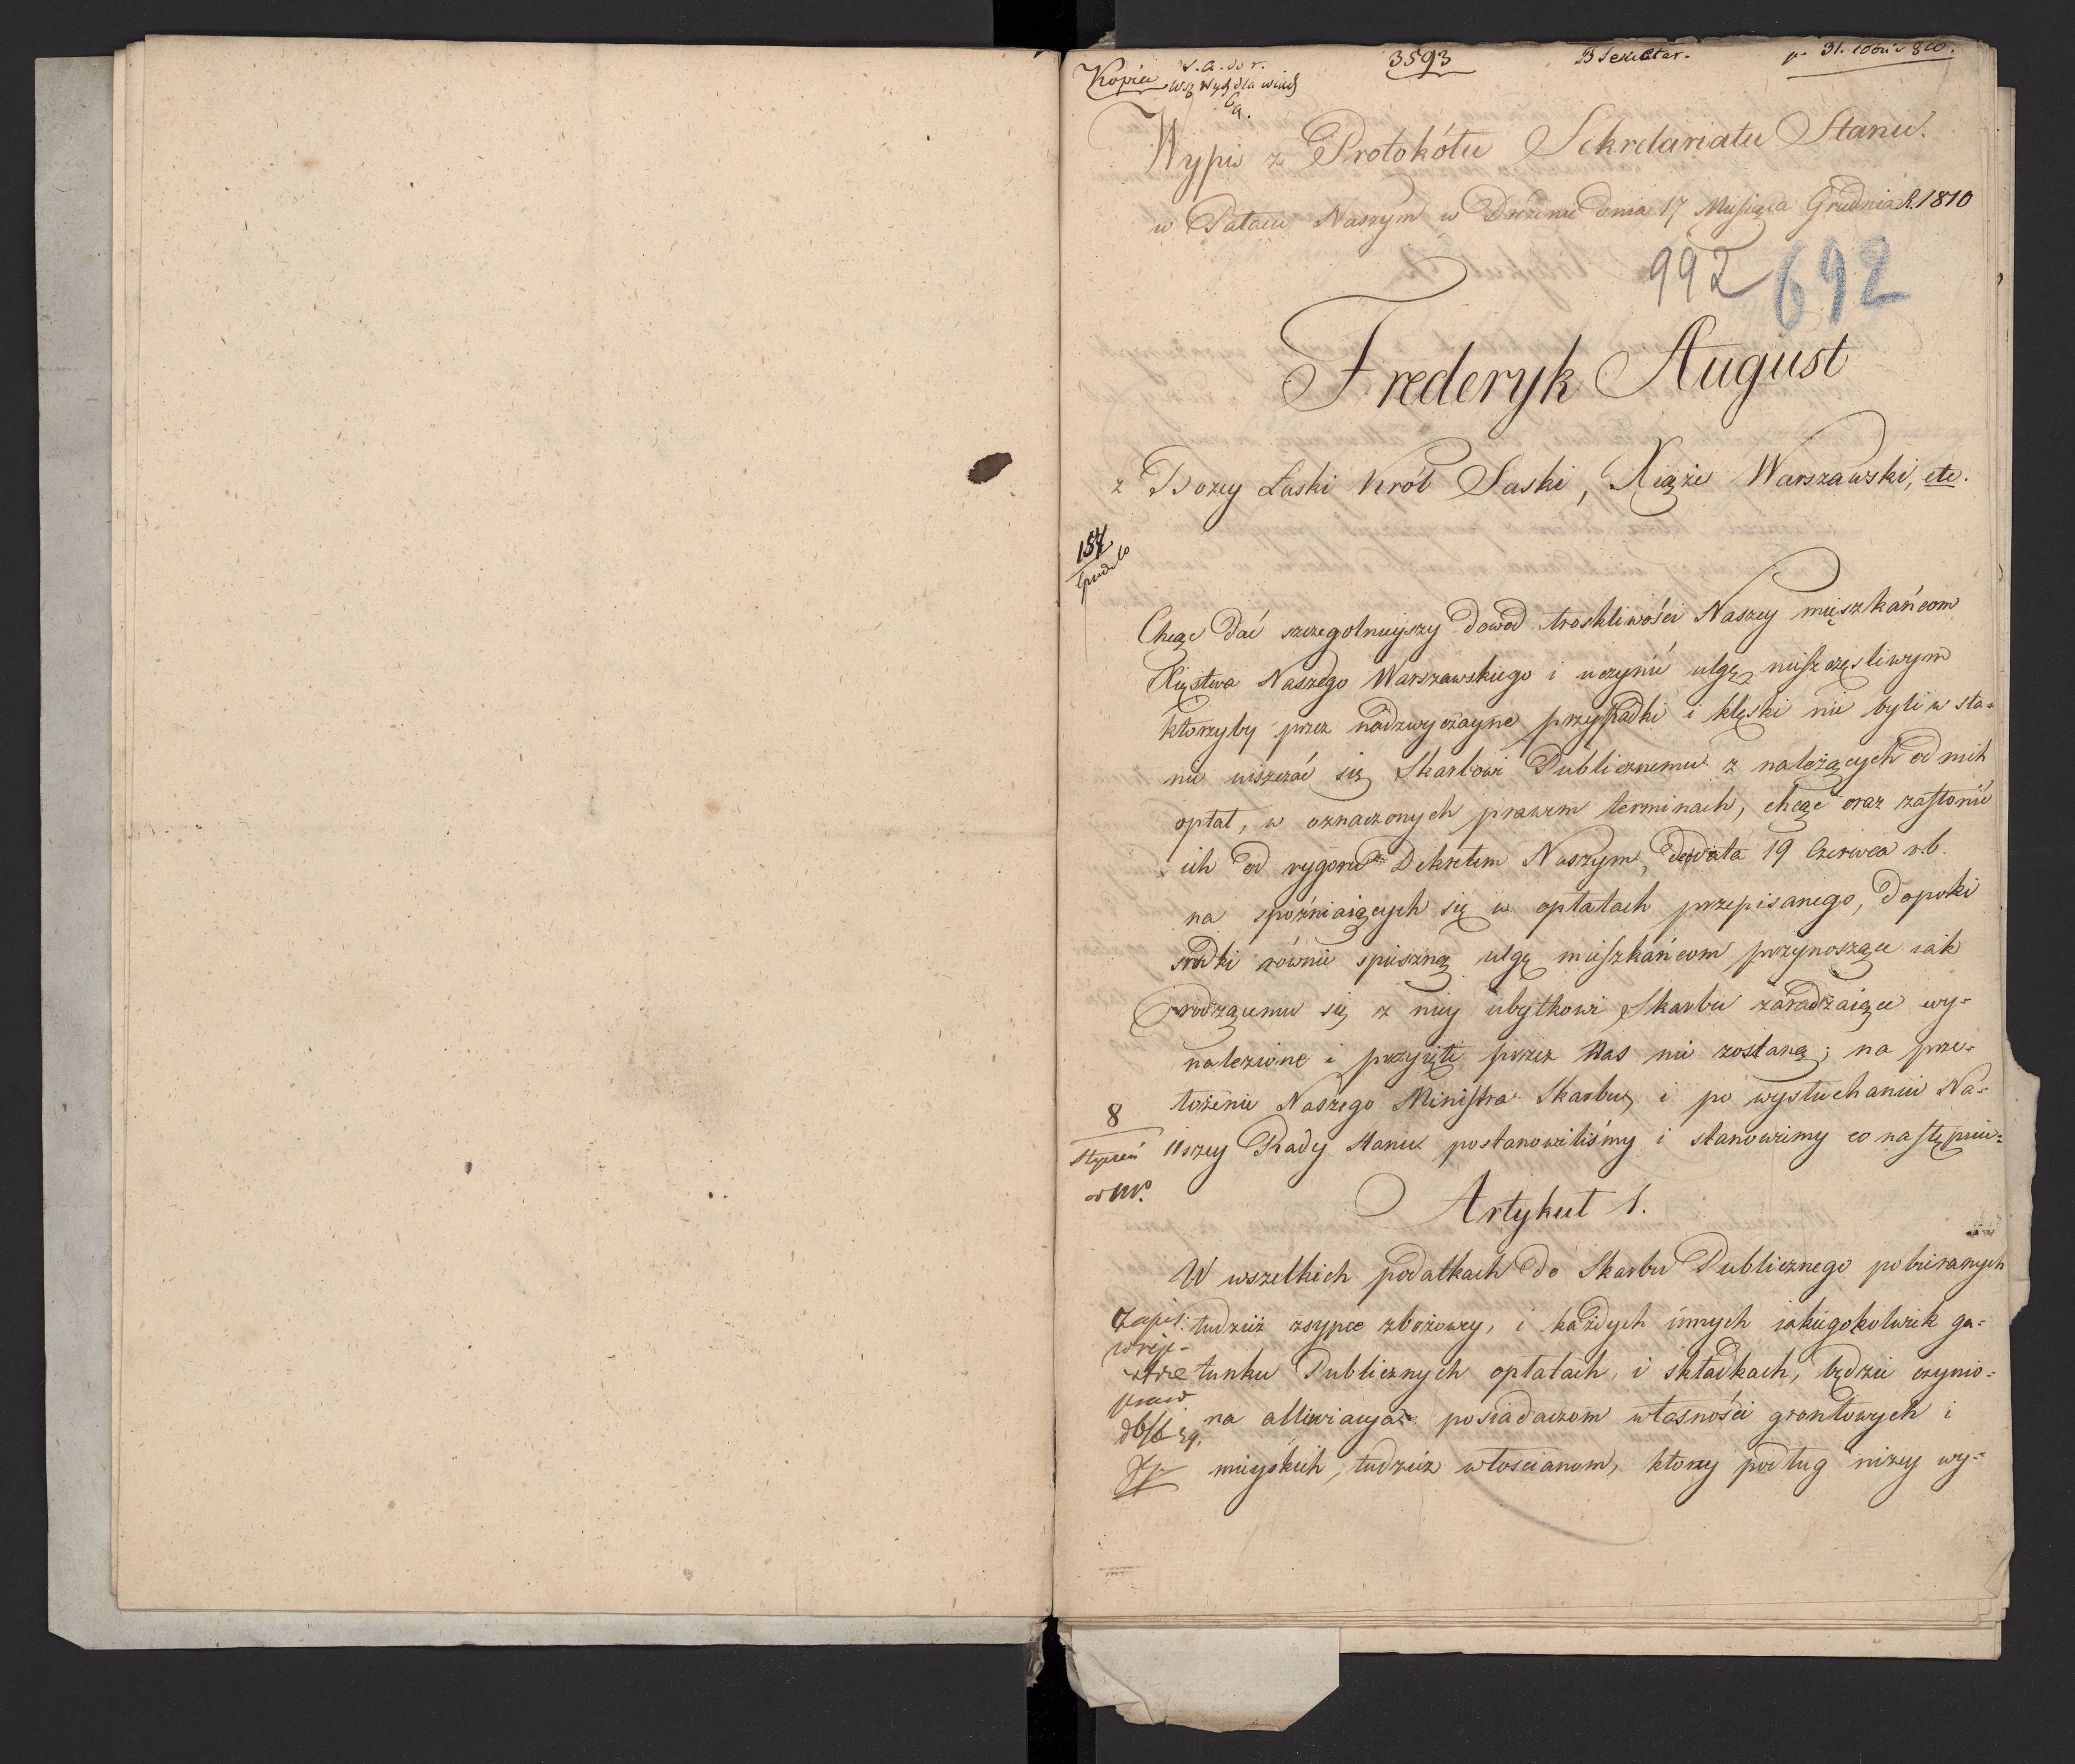 3593
Kopia
Wypis z Protokółu Sekretariatu Stanu.
w Pałacu Naszym w Dreźnie dnia 17 Miesiąca Grudnia R. 1810
992 692
Frederyk August
z Bożey Łaski Król Saski, Xiąże Warszawski, etc.
Chcąc dać szczegolnieyszy dowod troskliwości Naszey mięszkańcom
Xięstwa Naszego Warszawskiego i uczynić ulgę nieszczęsliwym
ktorzyby przez nadzwyczayne przypadki i klęski nie byli w sta=
nie uiszczać się Skarbowi Publicznemu z należących od nich
opłat, w oznaczonych prawem terminach, chcąc oraz zasłonić
ich od rygoru Dekretem Naszym, dedata 19 Czerwca r.b.
na spoźniaiących się w opłatach przepisanego, dopoki
srodki równie spieszną ulgę mieszkańcom przynoszące iak
rodzącemu się z niey ubytkowi Skarbu zaradzaiące wy=
nalezione i przyięte przez Nas nie zostaną; na prze=
łożenie Naszego Ministra Skarbu, i po wysłuchaniu Na=
8 szey Rady Stanu postanowiliśmy i stanowimy co następuie:
Artykuł 1.
W wszelkich podatkach do Skarbu Publicznego pobieranych
tudzież zsypce zbożowey, i każdych innych iakiegokolwiek ga=
tunku Publicznych opłatach, i składkach, będzie czynio=
na alleviacya posiadaczom własności gruntowych i
mieyskich, tudzież włoscianom, ktorzy podług niżey wy=